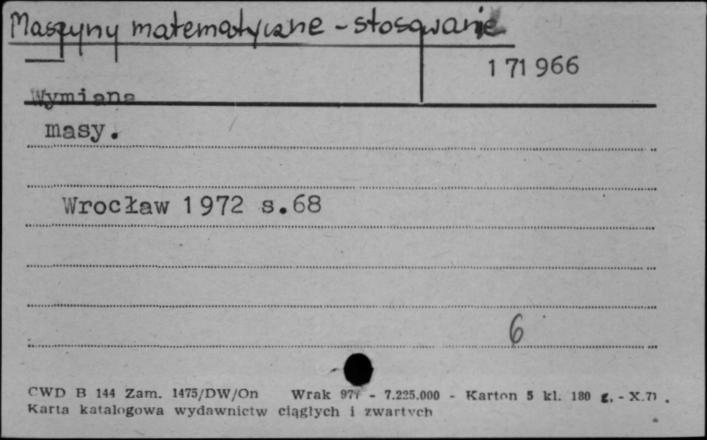 Maszyny matematyczne - stosowanie
171966
Wymiana
masy.
Wrocław 1972 s.68
6
CWD B 144 Zam. 1475/DW/On Wrak - 7.225.000 - Karton 5 kl. 180 g. - X.71.
Karta katalogowa wydawnictw ciągłych i zwartych